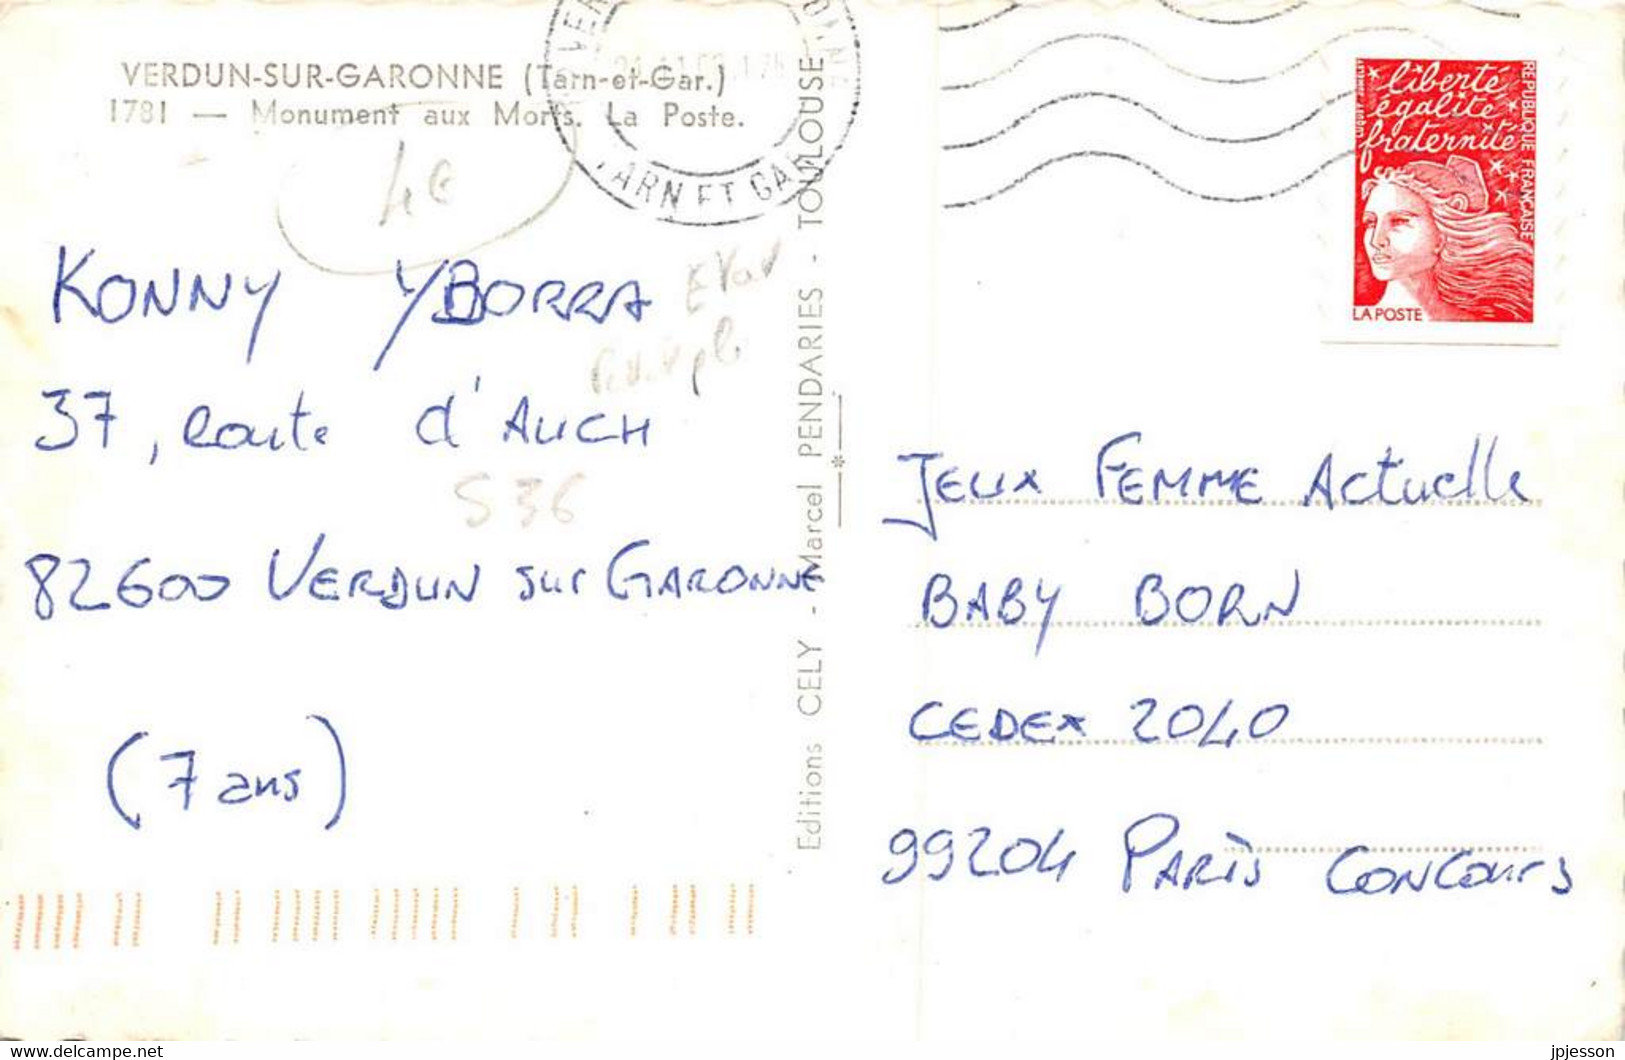 VERDUN-SUR-GARONNE (Tarn-et-Gar.)
1781 — Monument aux Morts. La Poste.
TARN ET GAR
4€
KONNY YBORRA
37, route d'AUCH
S36
82600 VERDUN sur GARONNE
(7 ans)
Editions CELY - Marcel PENDARIES - TOULOUSE
liberté
égalité
fraternité
RÉPUBLIQUE FRANÇAISE
LA POSTE
JEUX FEMME ActuelLe
BABY BORN
CEDEX 2040
99204 PARiS CONCOURS
jpjesson
https://www.delcampe.net